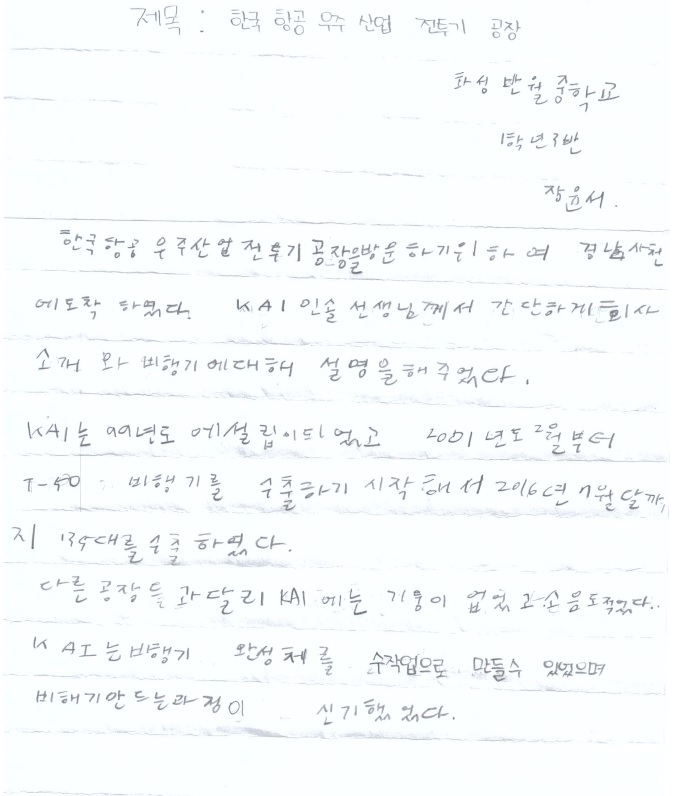 제목 : 한국 항공 우주 산업 전투기 공장
화성 반월중학교
1학년 3반
장윤서.
한국항공 우주산업 전투기 공장을방문하기위하여 경남사천
에도착 하였다. KAI 인솔 선생님께서 간단하게 회사
소개 와 비행기에대해 설명을해주었다.
KAI는 99년도 에설립이되었고 2001년도 2월부터
T-50 비행기를 수출하기 시작해서 2016년 7월달까
지 139대를 수출 하였다.
다른 공장들과달리 KAI 에는 기둥이 없었고소음도적었다..
KAI는비행기 완성체를 수작업으로 만들수 있었으며
비해기만드는과정이 신기했었다.